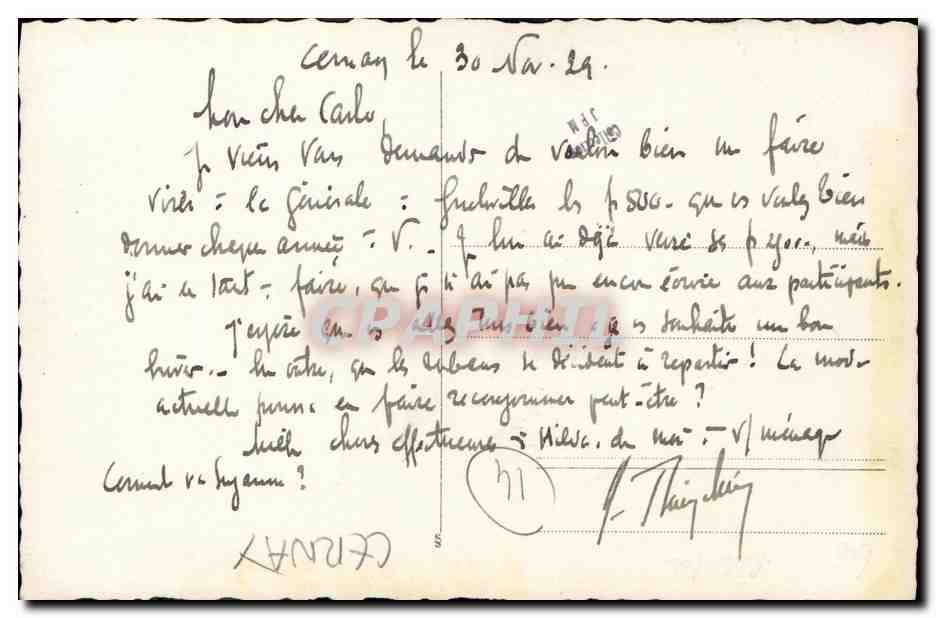 Cernay le 30 Nov. 29.
Mon cher Carlo,
Je viens vous demander de vouloir bien me faire
virer à la Générale à Guebwiller les f 500.- que vs voulez bien
donner chaque année à V. - Je lui ai déjà versé ses f 2500., mais
j'ai eu tant à faire, que je n'ai pas pu encore écrire aux participants.
J'espère que vs allez tous bien et je vs souhaite un bon
hiver. - En outre, que les rubans se décident à repartir ! La mode
actuelle pourra en faire recommencer peut-être ?
Mille choses affectueuses à Hilda, de moi à v/ ménage
Comment va Suzanne ?
14
CERNAY
CRAPHIL
JPM